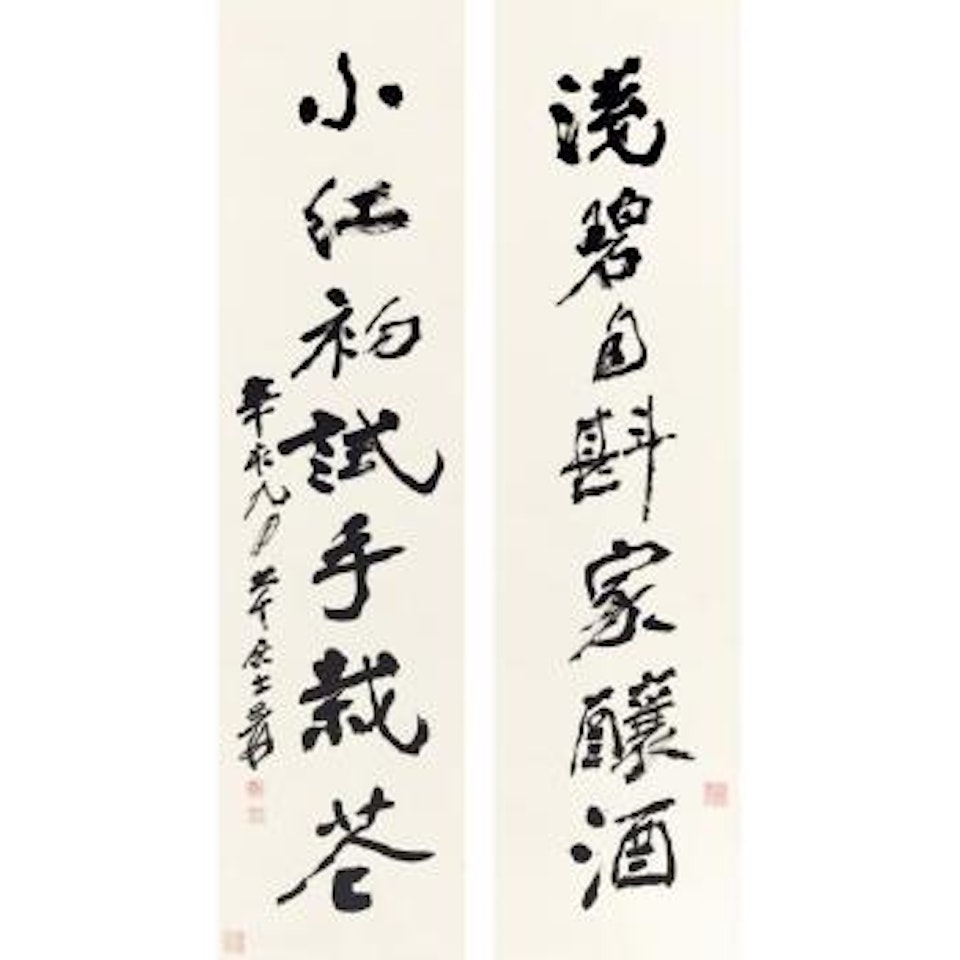 淺碧自斟家釀酒
小紅初試手栽花
辛亥九月大千居士爰